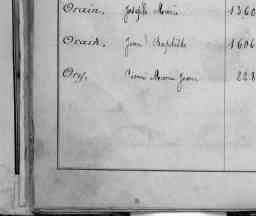 Orain, Joseph Marie 1360
Orard, Jean Baptiste 1606
Ory, Pierre Marie Jean 228